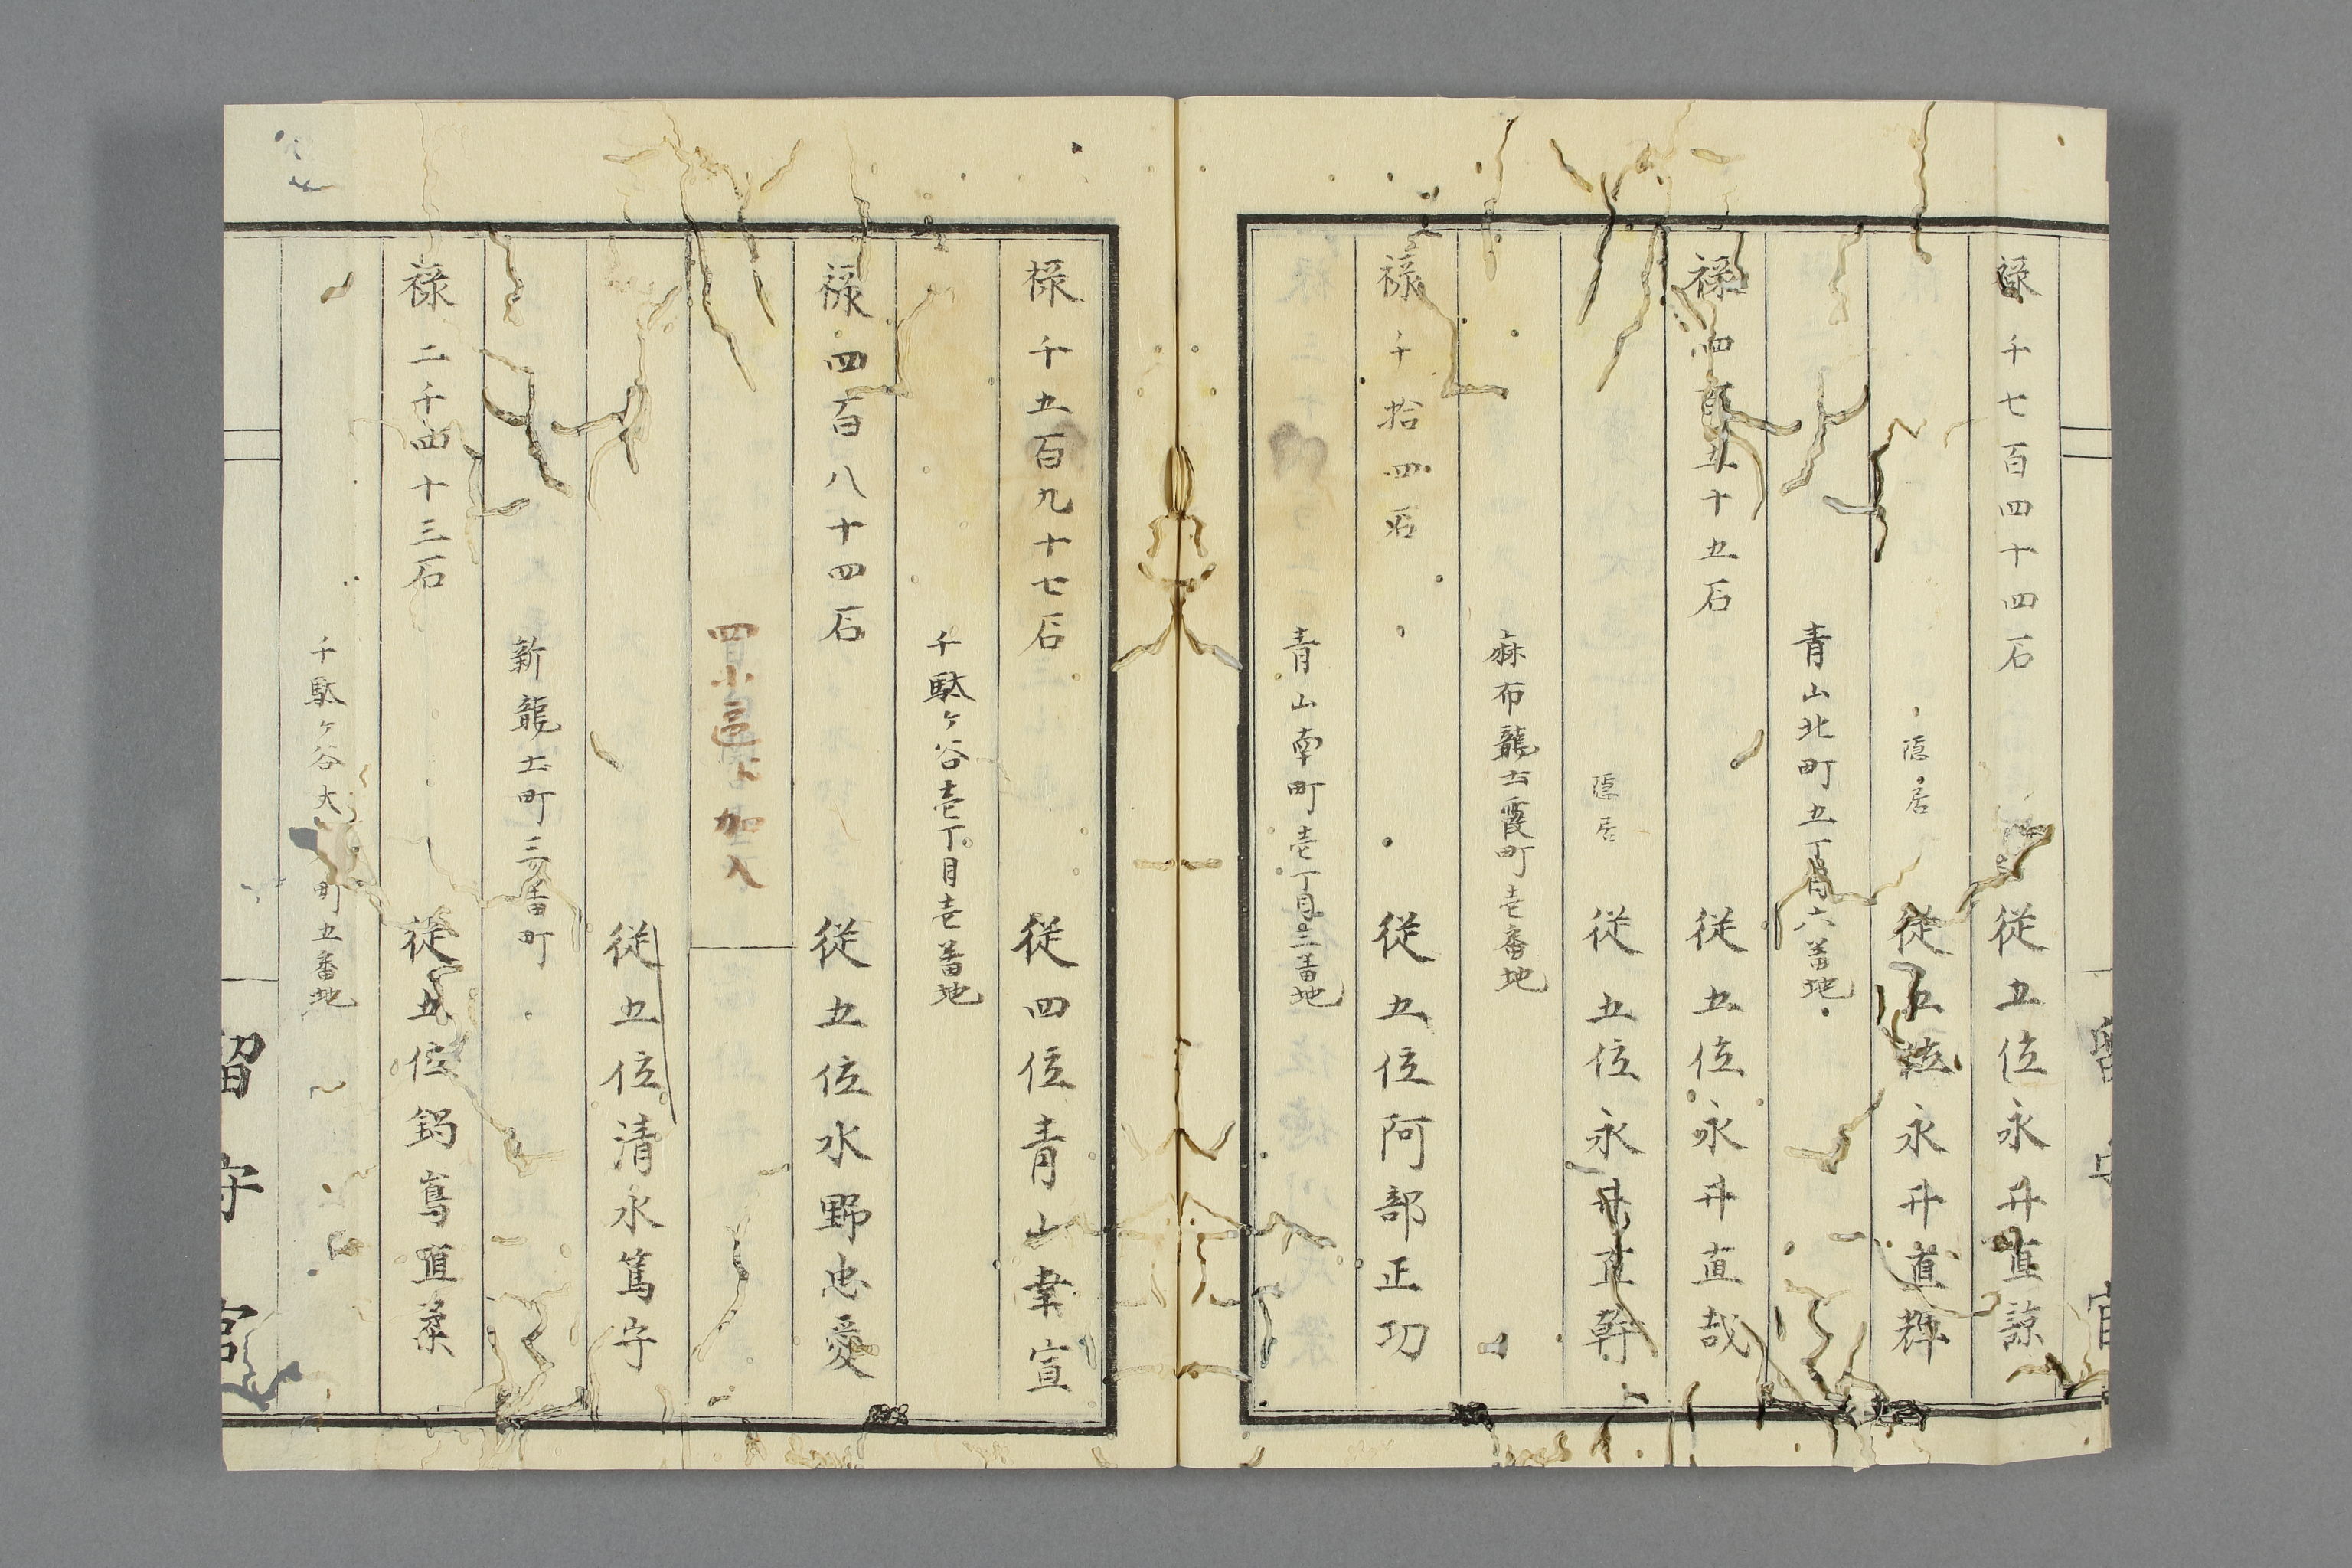 禄千七百四十四石 従五位永井直諒
隠居 従五位永井直輝
青山北町五丁目六番地
禄四百五十五石 従五位永井直哉
隠居 従五位永井直幹
麻布龍土霞町壱番地
禄千拾四石 従五位阿部正功
青山南町壱丁目三番地
禄千五百九十七石 従四位青山幸宣
千駄ヶ谷壱丁目壱番地
禄四百八十四石 従五位水野忠愛
加入
従五位清水篤守
新龍土町三番町
禄二千四十三石 従五位鍋島直柔
千駄ヶ谷大 町五番地
留守官